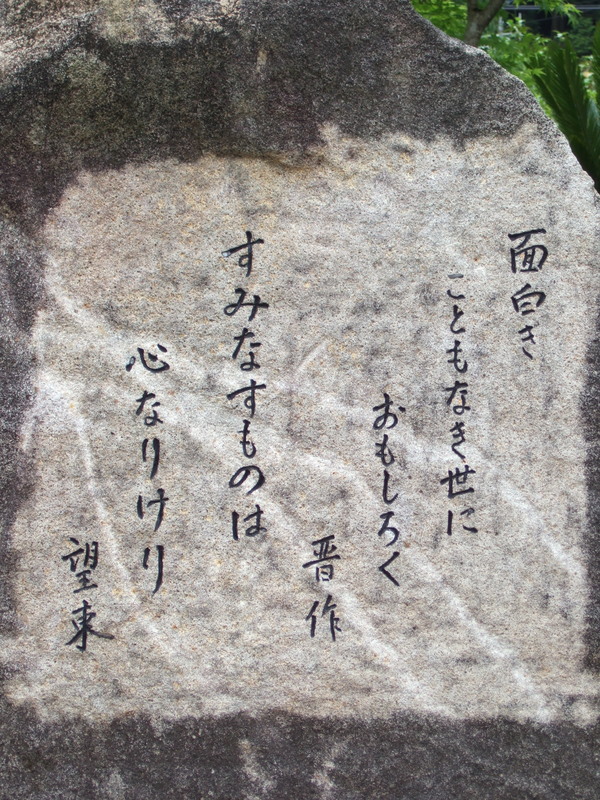 面白き
こともなき世に
おもしろく
晋作
すみなすものは
心なりけり
望東